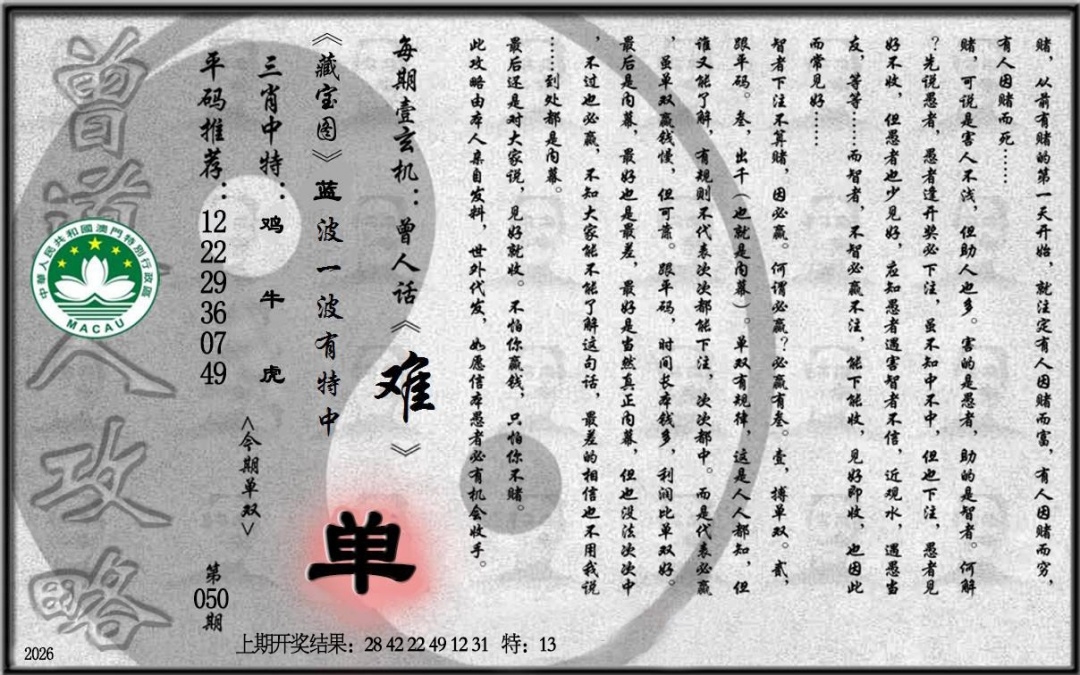 赌，从前有赌的第一天开始，就注定有人因赌而富，有人因赌而穷，
有人因赌而死……
赌，可说是害人不浅，但助人也多。害的是愚者，助的是智者。何解
？先说愚者，愚者逢开奖必下注，虽不知中不中，但也下注，愚者见
好不收，但愚者也少见好，应知愚者遇害智者不信，近观水，遇愚当
友，等等……而智者，不智必赢不注，能下能收，见好即收，也因此
而常见好……
智者下注不算赌，因必赢。何谓必赢？必赢有叁。壹，搏单双。贰，
跟单码。叁，出千（也就是内幕）。单双有规律，这是人人都知，但
谁又能了解，有规则不代表次次都能下注，次次都中。而是代表必赢
，虽单双赢钱慢，但可靠。跟单码，时间长本钱多，利润比单双好。
最后是内幕，最好也是最差，最好是当然真正内幕，但也没法次次中
，不过也必赢，不知大家能不能了解这句话，最差的相信也不用我说
……到处都是内幕。
最后还是对大家说，见好就收。不怕你赢钱，只怕你不赌。
此攻略由本人亲自发料，世外代发，如愿信本愚者必有机会收手。
每期壹玄机：曾人话《难》
《藏宝图》蓝波一波有特中
三肖中特：鸡 牛 虎
<今期单双>
单
平码推荐：12 22 29 36 07 49
第050期
曾道人攻略
中華人民共和國澳門特別行政區
MACAU
上期开奖结果：28 42 22 49 12 31 特：13
2026